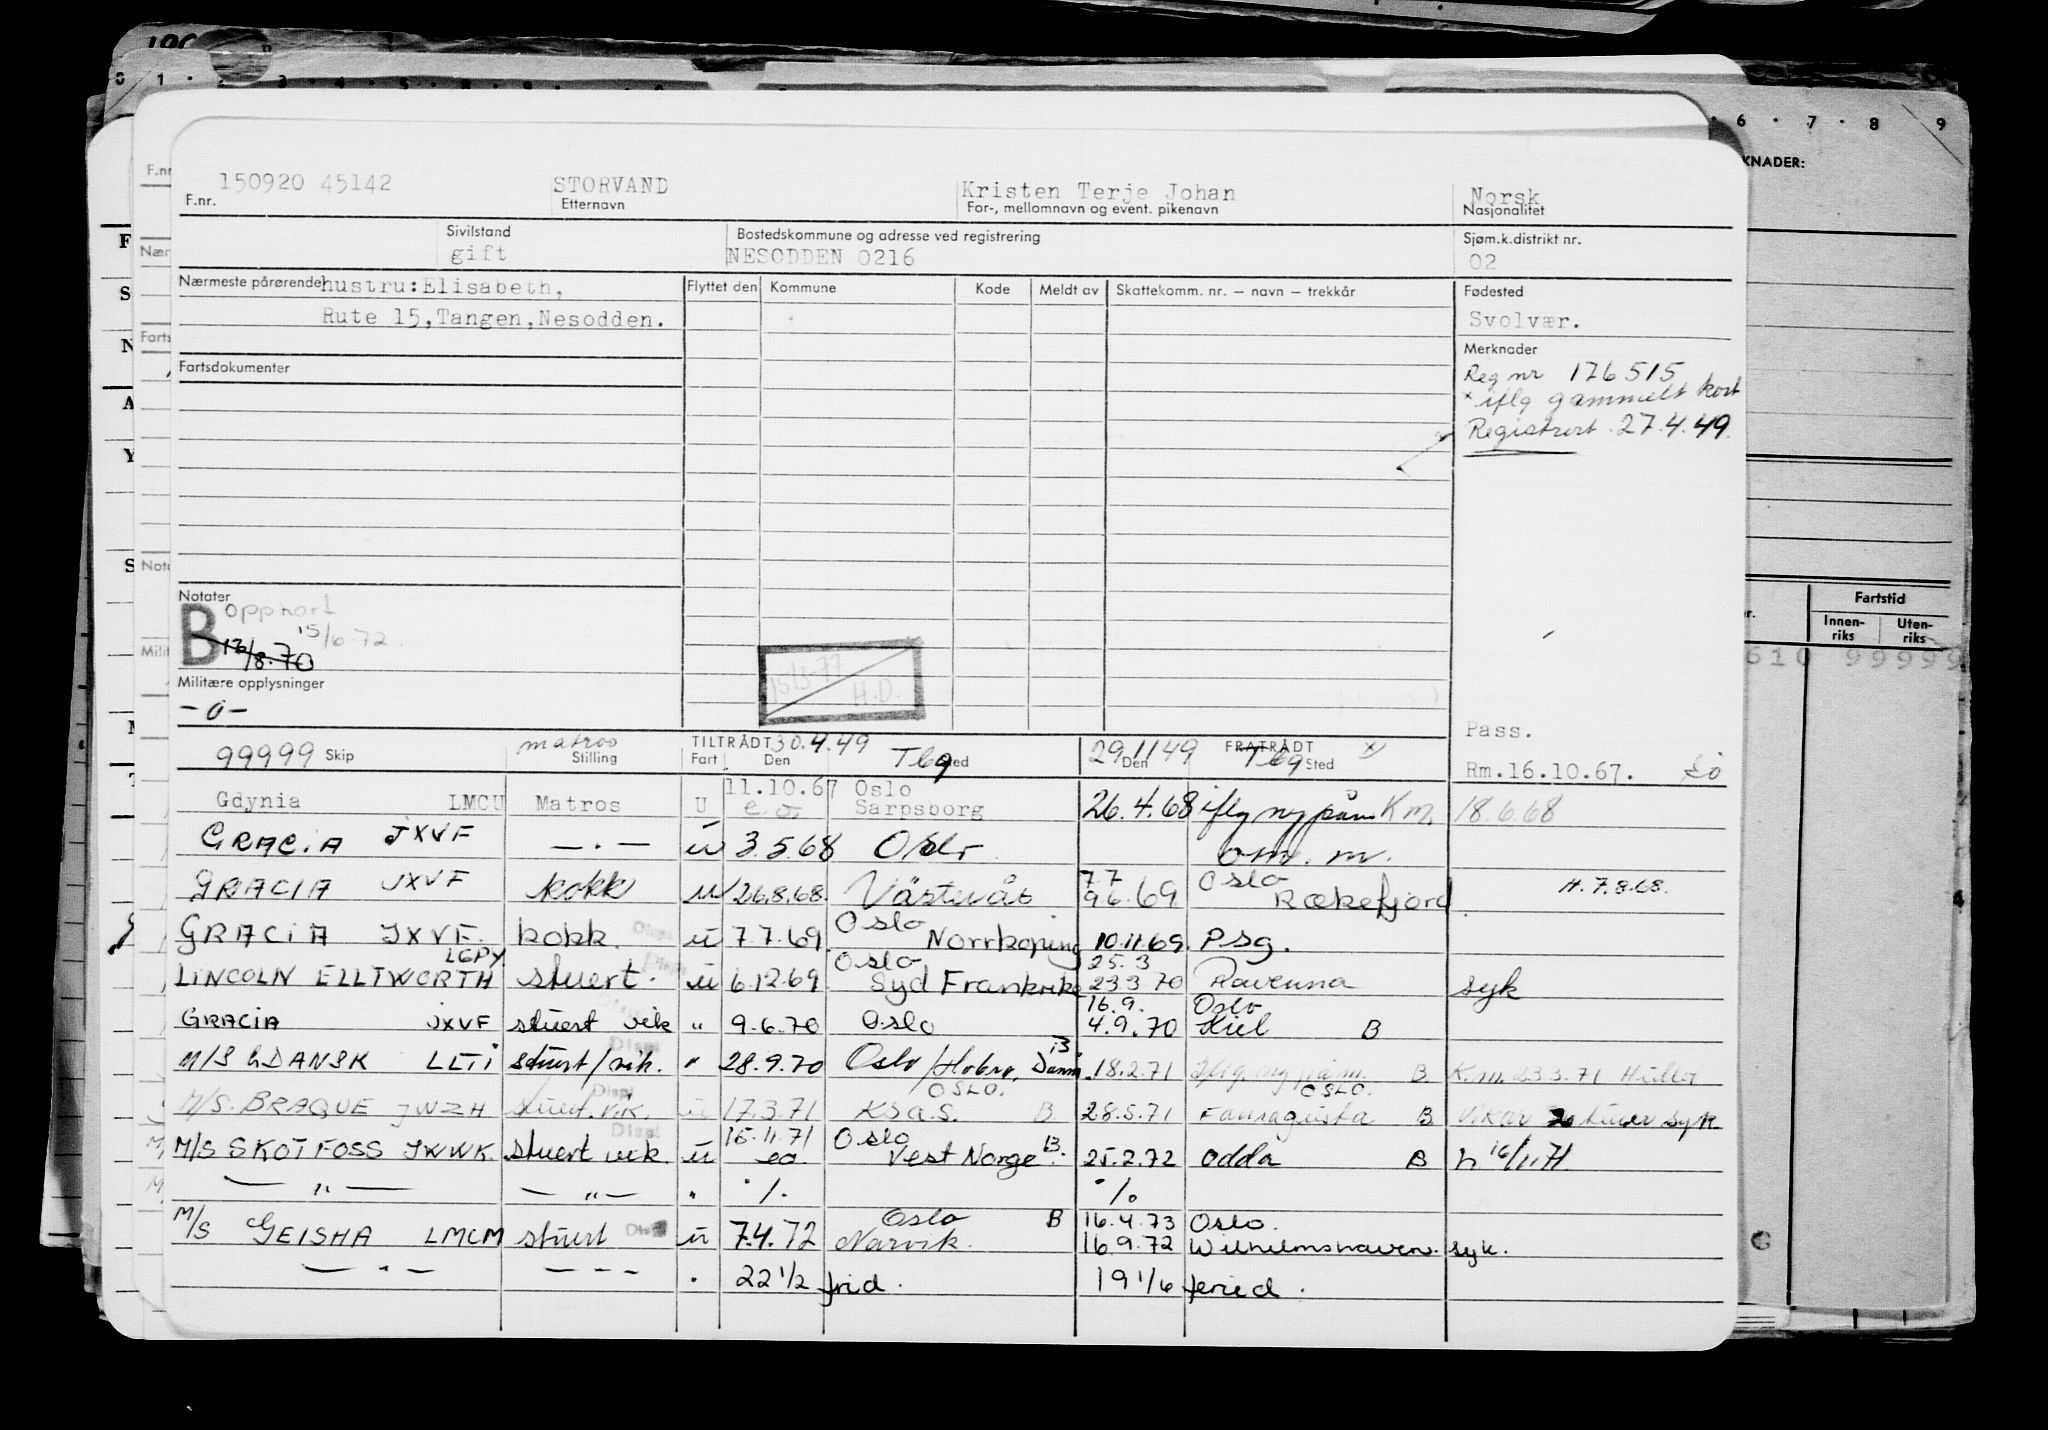 150920 45142 STORVAND Kristen Terje Johan Norsk
F.nr. Etternavn For-, mellomnavn og event. pikenavn Nasjonalitet
Sivilstand Bostedskommune og adresse ved registrering Sjøm.k.distrikt nr.
gift NESODDEN 0216 02
Nærmeste pårørende hustru:Elisabeth, Flyttet den Kommune Kode Meldt av Skattekomm. nr. – navn – trekkår Fødested
Rute 15,Tangen,Nesodden. Svolvær.
Merknader
Fartsdokumenter
Reg nr 176515
* iflg gammelt kort
Registrert 27.4.49.
Notater
B opphørt
15/6.72.
12/8.70
Militære opplysninger
15/3-77
H.D.
-0-
Pass.
99999 Skip matros Stilling TILTRÅDT 30.4.49 Fart Den Tbg Sted 29/11 49 Den FRATRÅDT Tbg Sted x)
Rm.16.10.67.
11.10.67 Oslo
Gdynia LMCU Matros U e.o. Sarpsborg 26.4.68 iflg ny påm Km. 18.6.68
GRACIA JXVF — . — u 3.5.68 Oslo om. m.
GRACIA JXVF kokk u 26.8.68. 7.7 9.6.69 Oslo Rækefjord H. 7.8.68.
GRACIA JXVF. kokk. u 7.7.69. Oslo Norrköping 10.11.69. Psg.
LINCOLN ELLTWORTH LGPY stuert. u 6.12.69 Oslo Syd Frankrike 25.3 23.3 70 Ravenna syk
GRACIA JXVF stuert vik " 9.6.70 Oslo 16.9. 4.9.70 Oslo Kiel B
M/S GDANSK LLTI stuert/vik. " 28.9.70 Oslo/Hobro, Danm. B 18.2.71 Iflg. ny påm. B K.m. 23.3.71
M/S. BRAQUE JWZH stuert. vik. u 17.3.71 OSLO. Ksa.S. B 28.5.71 OSLO. Famagusta B Vikar stuer syk
M/S SKOTFOSS JWWK stuert vik. u 15.11.71 eo. Oslo Vest Norge B. 25.2.72 Odda B h 16/11.71
— " — — " — " ·/. ·/.
M/S GEISHA LMCM stuert u 7.4.72 Oslo Narvik. B 16.4.73 16.9.72 Oslo. Wilhelmshaven. syk.
— " — — " — " 22 1/2 frid. 19 1/6 feried.
KNADER:
Fartstid
Innen-riks Uten-riks
610 99999